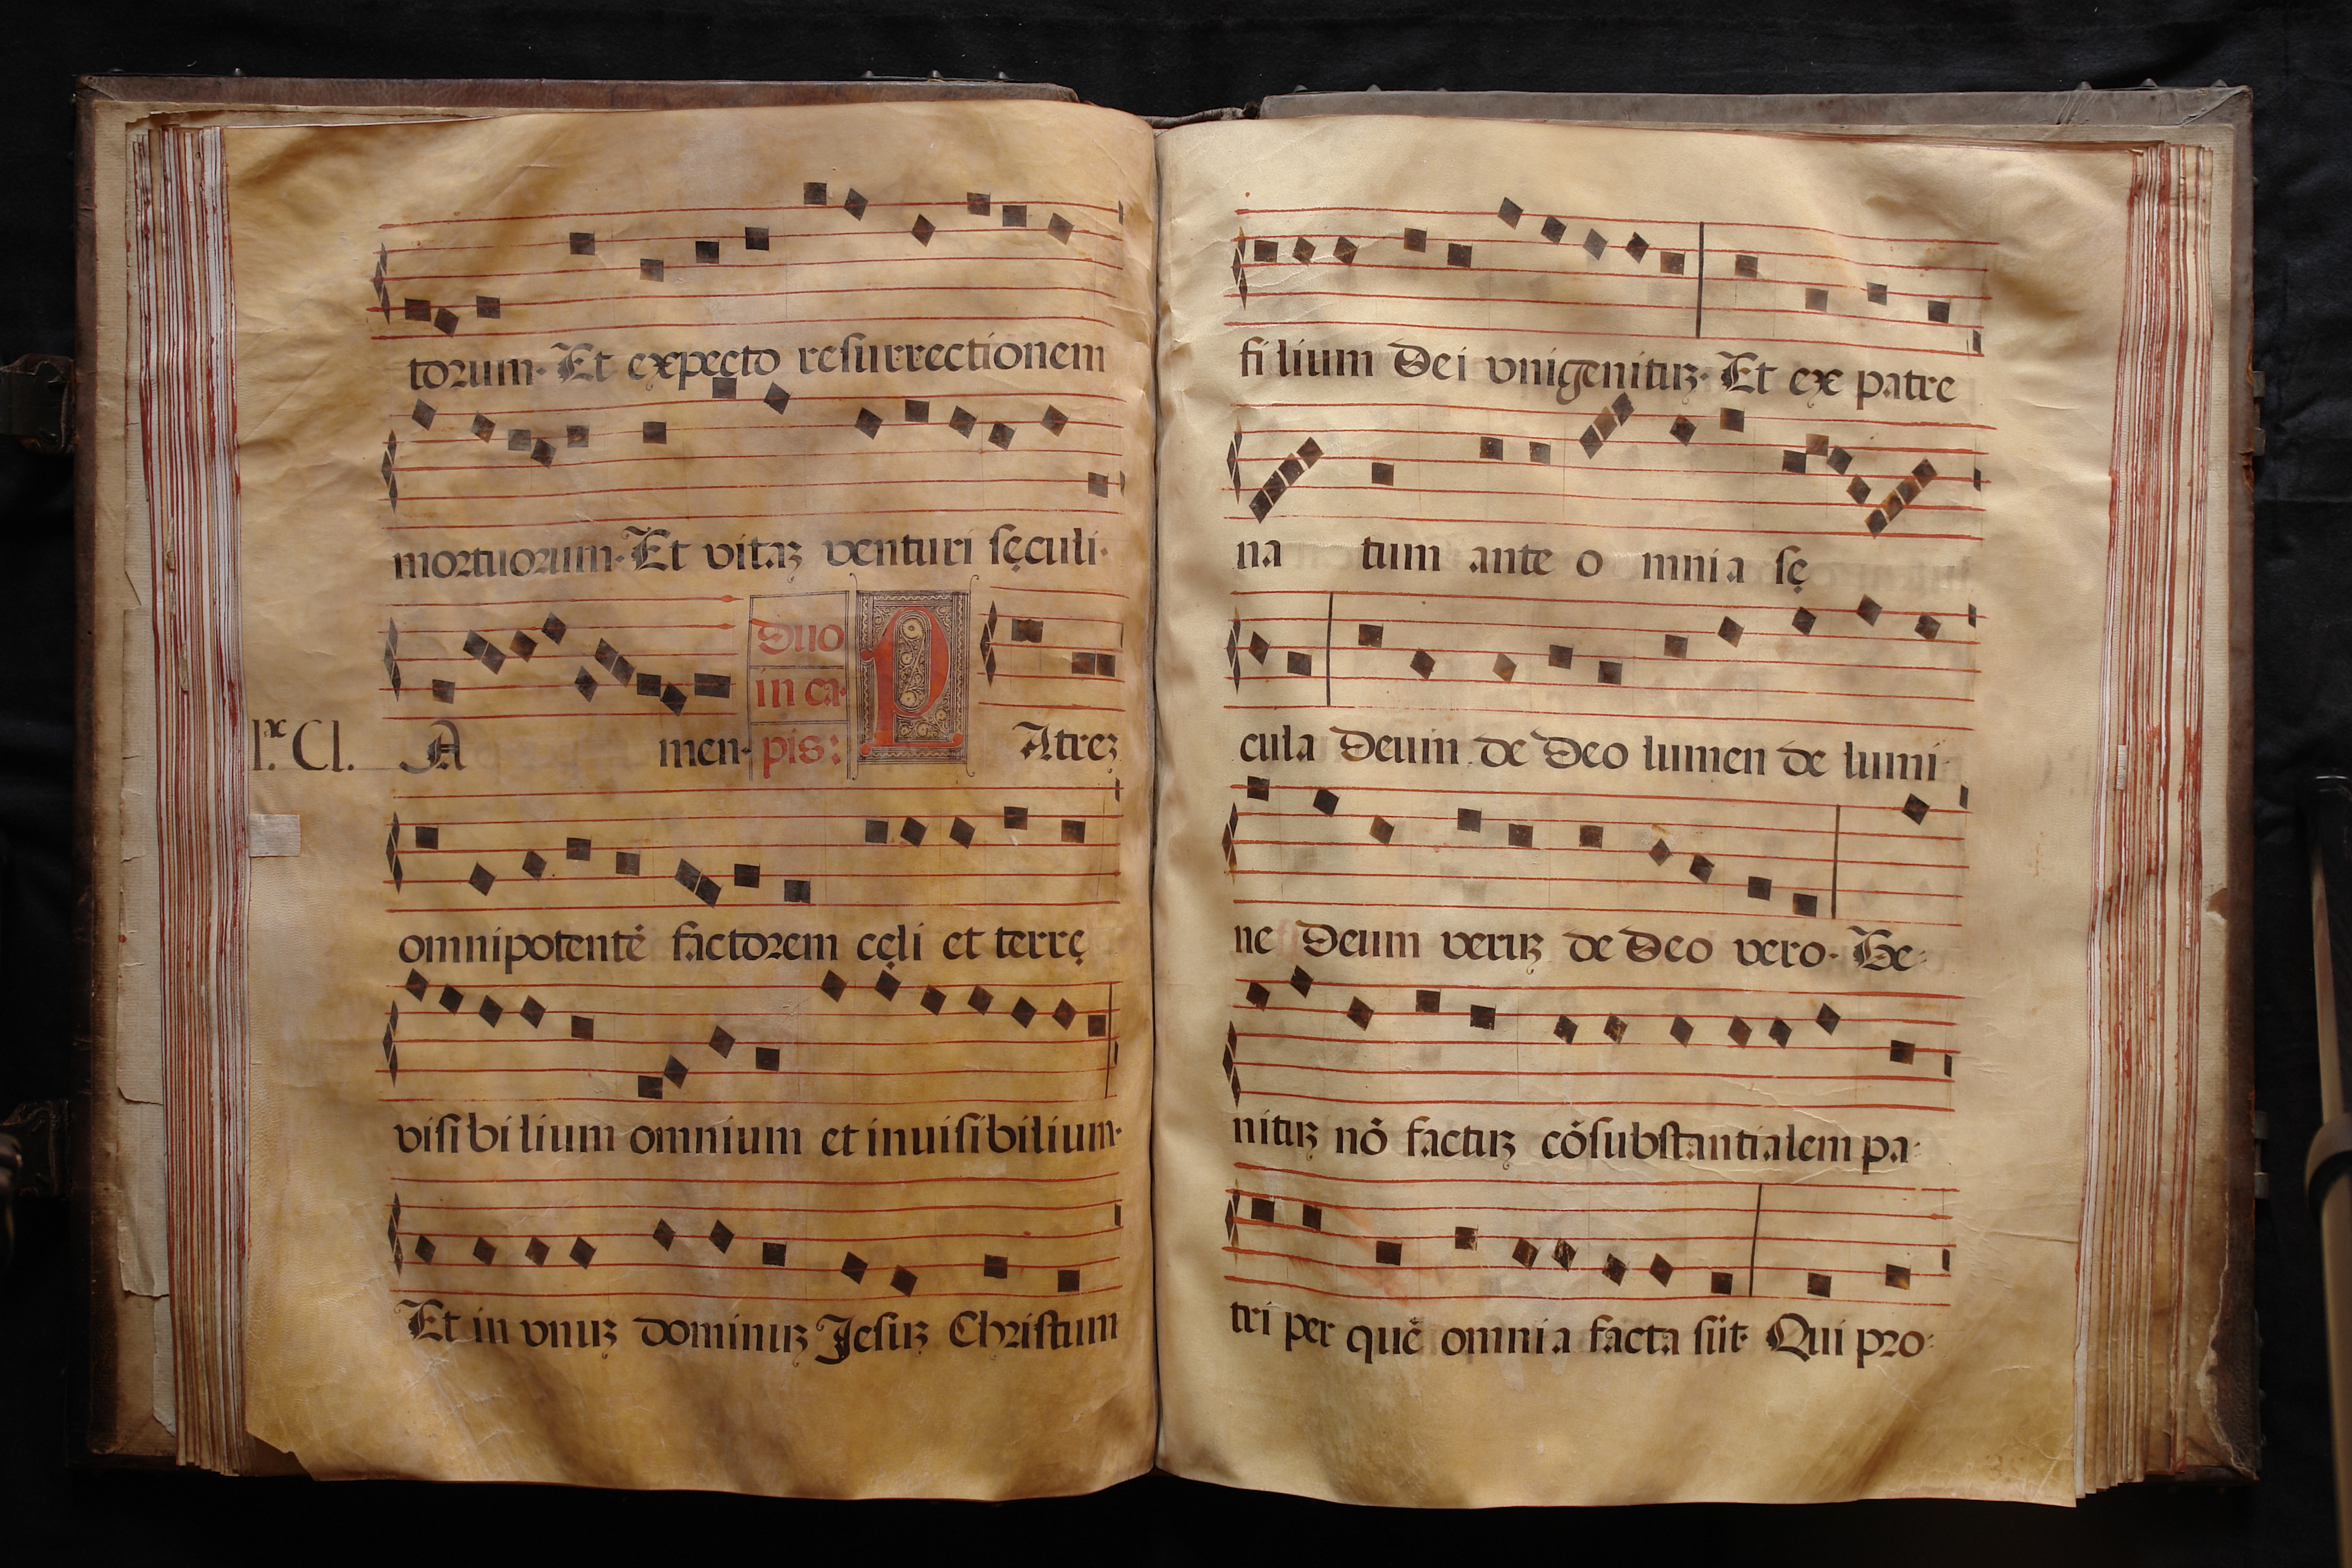 torum· Et expecto resurrectionem
mortuorum· Et vitaꝫ venturi sęculi·
Duo
in ca-
pis:
P
l.ͣ Cl. A men· Atreꝫ
omnipotentē factorem cęli et terrę
visibilium omnium et inuisibilium·
Et in vnuꝫ dominuꝫ Jesuꝫ Christum
filium Dei vnigenituꝫ· Et ex patre
na tum ante o mnia sę
cula Deum de Deo lumen de lumi-
ne Deum veruꝫ de Deo vero· Ge-
nituꝫ nō factuꝫ cōsubstantialem pa-
tri per quē omnia facta sūt· Qui pro-